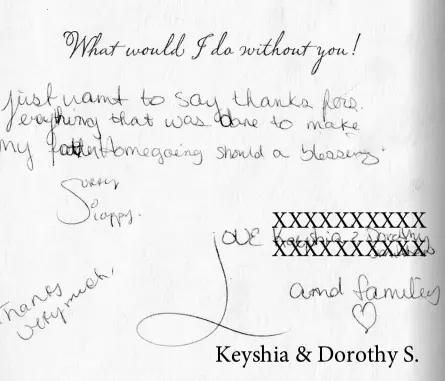 What would I do without you!
just want to say thanks for
everything that was done to make
my Homegoing should a blessing.
Sorry
Sloppy.
XXXXXXXXXX
LOVE Keyshia & Dorothy
XXXXXXXXXX
and families
Thanks
very much,
Keyshia & Dorothy S.